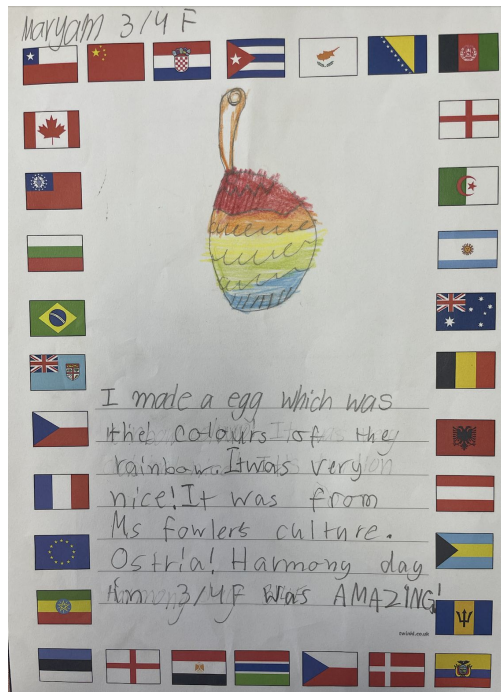 Maryam 3/4 F
I made a egg which was
the colours of the
rainbow. It was very
nice! It was from
Ms fowlers culture.
Ostria! Harmony day
in 3/4 F was AMAZING!
twinkl.co.uk